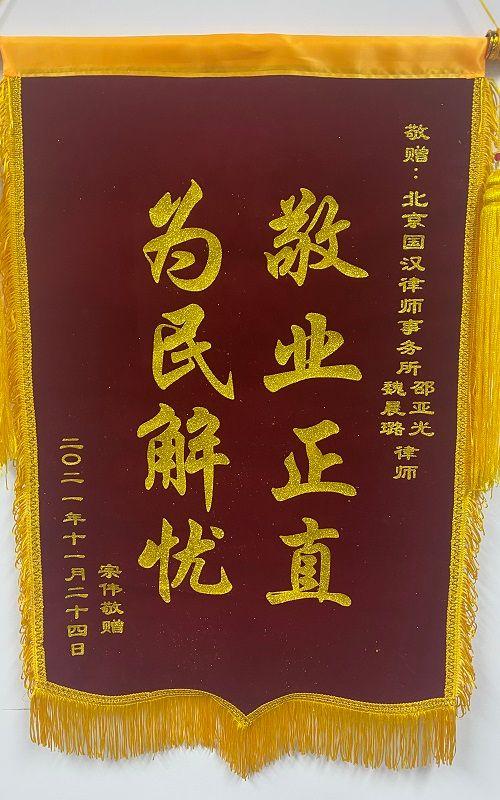 敬赠：北京国汉律师事务所邵亚光魏晨璐律师
敬业正直
为民解忧
宗伟敬赠
二〇二一年十一月二十四日